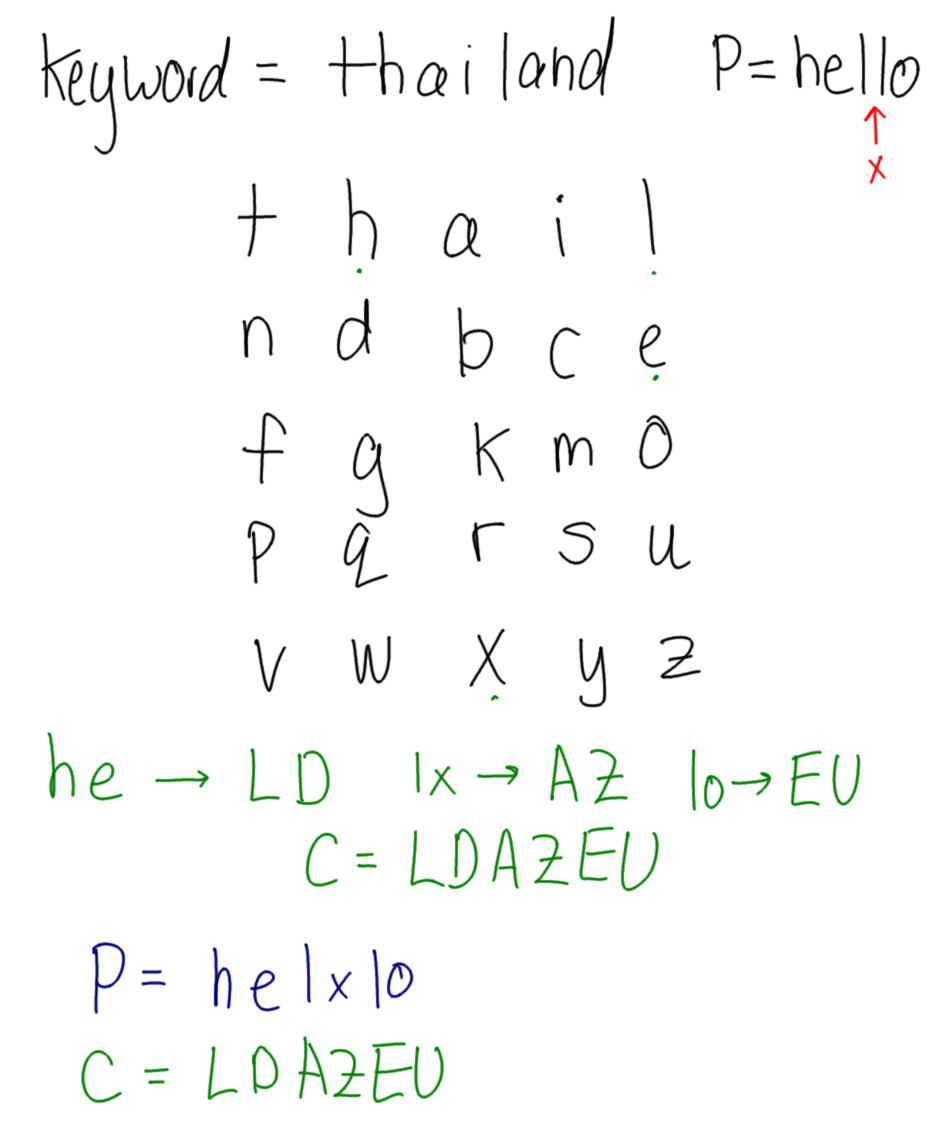 keyword = thailand P=hello
↑
x
t h a i l
n d b c e
f g k m o
p q r s u
v w x y z
he → LD lx → AZ lo → EU
C = LDAZEU
P = helxlo
C = LDAZEU